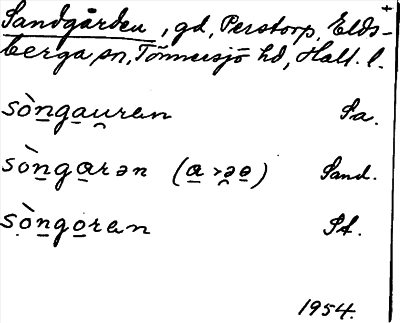 Sandgården, gd, Perstorp, Elds-
berga sn, Tönnersjö hd, Hall. l.
sòn̲ga̲u̯ren Sa.
sòn̲ga̲rən (a̲ > ə̯ə̲) Sand.
ṣòn̲go̲ren St.
1954.